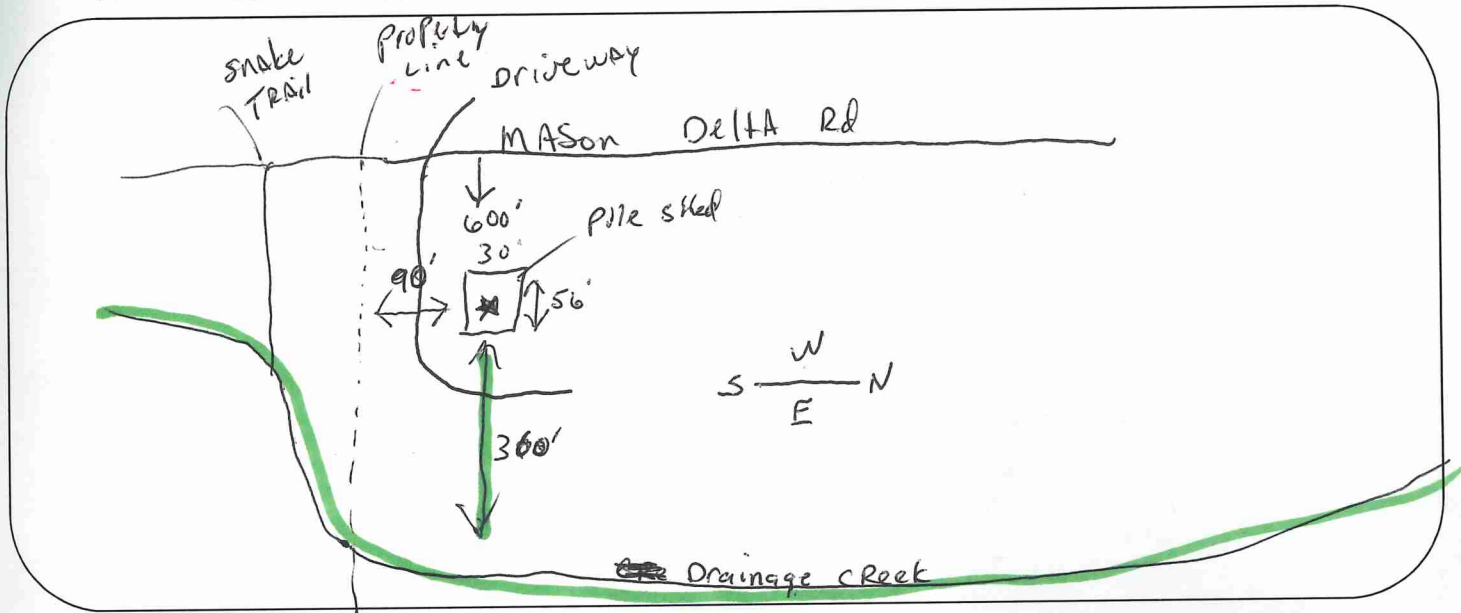 snake
TRAil
Property
Line
Driveway
MASon Delta Rd
600'
30'
Pile shed
90'
56'
W
S N
E
360'
Drainage cReek